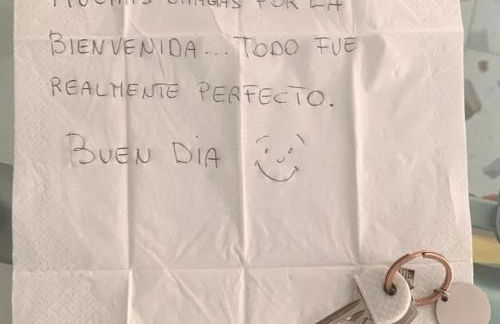 MUCHAS GRACIAS POR LA
BIENVENIDA... TODO FUE
REALMENTE PERFECTO.
BUEN DIA